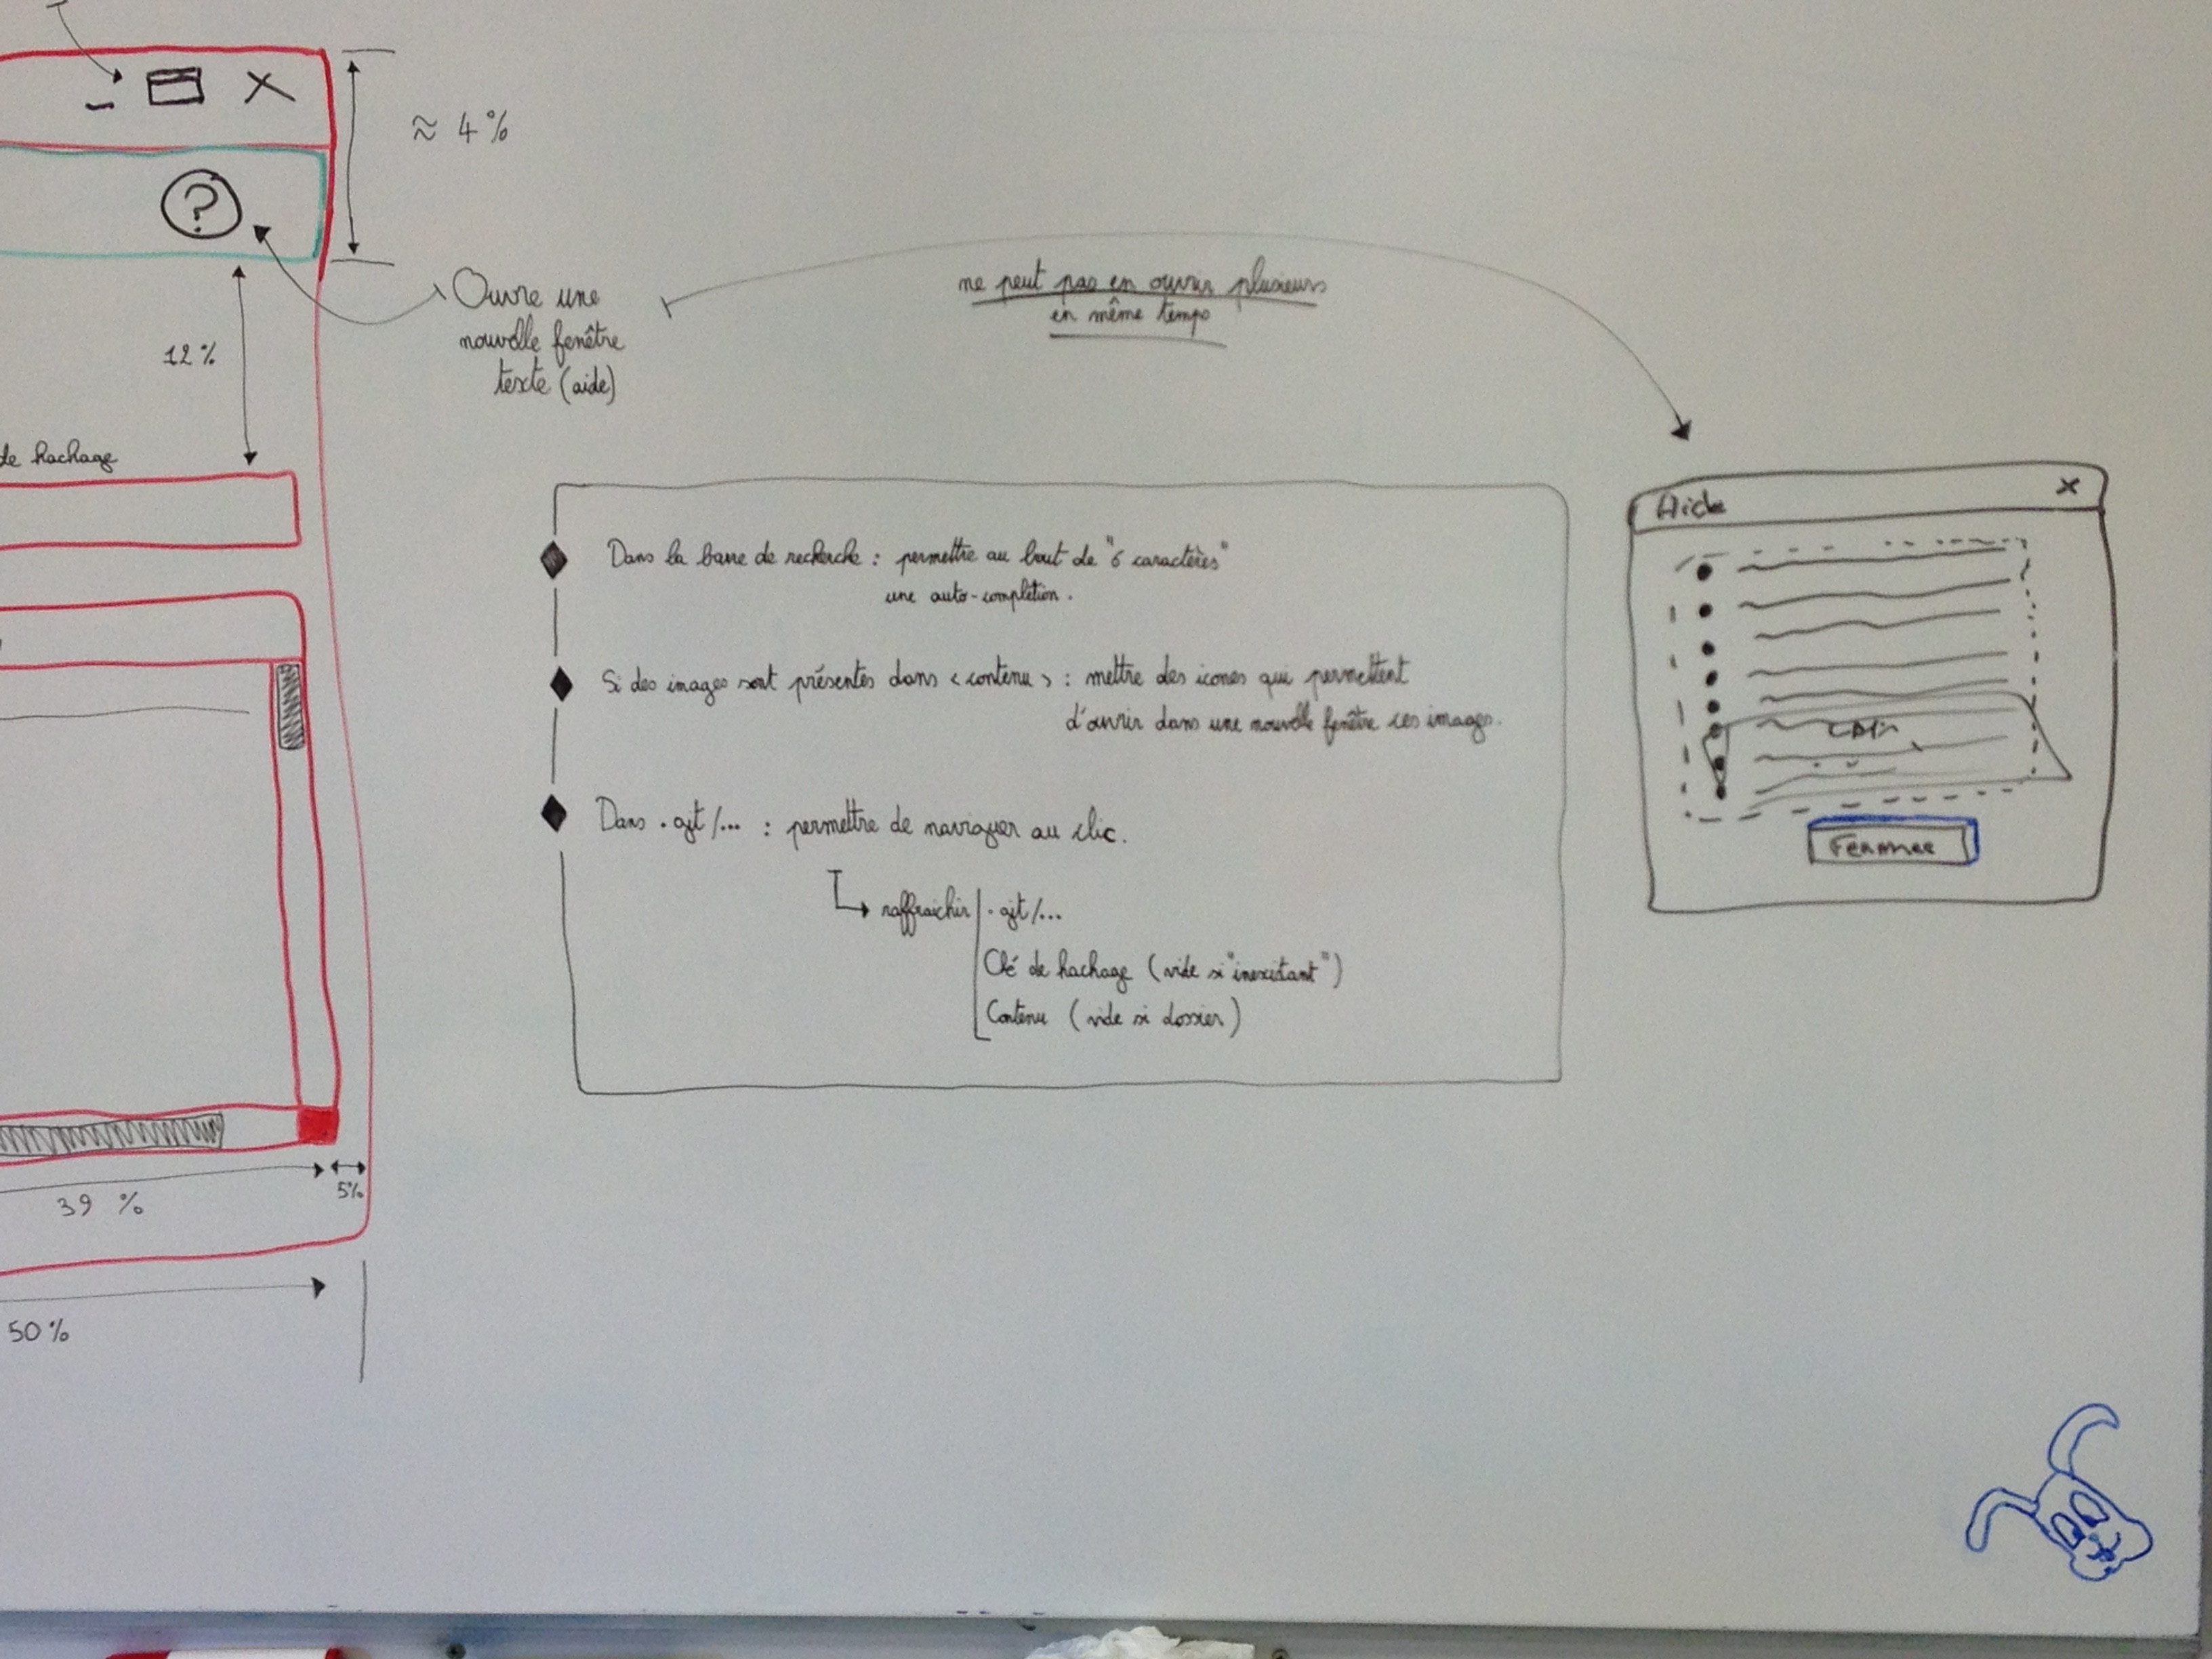 ≈ 4 %
?
Ouvre une
nouvelle fenêtre
texte (aide)
ne peut pas en ouvrir plusieurs
en même temps
12 %
de hachage
Dans la barre de recherche : permettre au bout de "6 caractères"
une auto-complétion.
Si des images sont présentes dans <contenu> : mettre des icones qui permettent
d'ouvrir dans une nouvelle fenêtre ces images.
Dans .git/... : permettre de naviguer au clic.
raffraichir .git/...
Clé de hachage (vide si "inexistant")
Contenu (vide si dossier)
Aide X
Fermer
39 %
5%
50 %